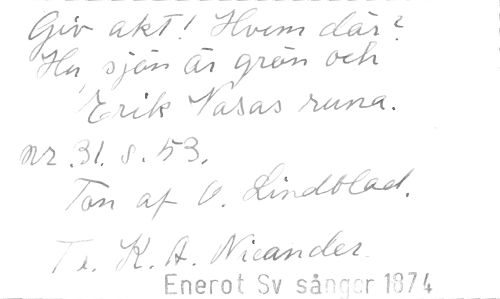 Giv akt! Hvem där?
Hu, sjön är grön och
Erik Vasas runa.
nr. 31. s. 53.
Ton af O. Lindblad.
Te. K. A. Nicander.
Enerot Sv sånger 1874